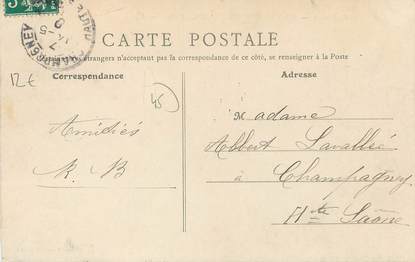 5
CHAMPAGNEY
CARTE POSTALE
étrangers n'acceptant pas la correspondance de ce côté, se renseigner à la Poste
Correspondance
Adresse
12€
45
Madame
Amitiés
Albert Lavallée
R. B
à Champagney
Hte Saône